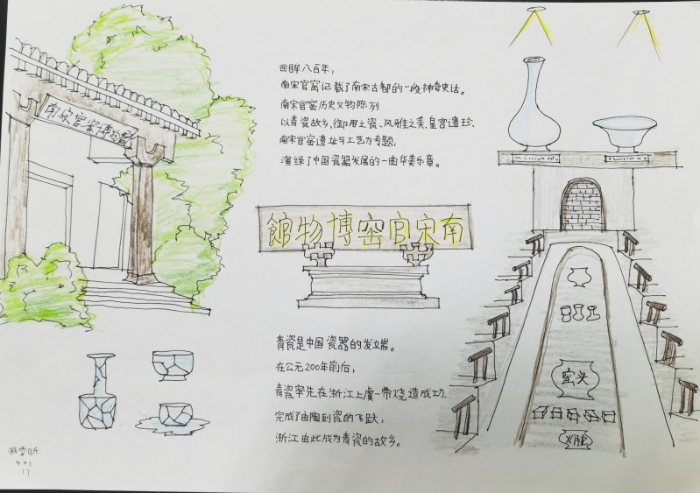 南宋官窑博物館
回眸八百年，
南宋官窑记载了南宋古都的一段神奇史话。
南宋官窑历史文物陈列
以青瓷故乡、御用之瓷、风雅之美、皇宫遗珍、
南宋官窑遗址与工艺为专题，
演绎了中国瓷器发展的一曲华美乐章。
館物博窑官宋南
青瓷是中国瓷器的发端。
在公元200年前后，
青瓷率先在浙江上虞一带烧造成功，
完成了由陶到瓷的飞跃，
浙江由此成为青瓷的故乡。
窑头
17